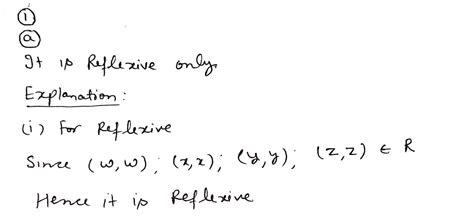 ①
ⓐ
It is Reflexive only.
Explanation:
(i) For Reflexive
Since (w, w); (x,x); (y,y); (z,z) ∈ R
Hence it is Reflexive